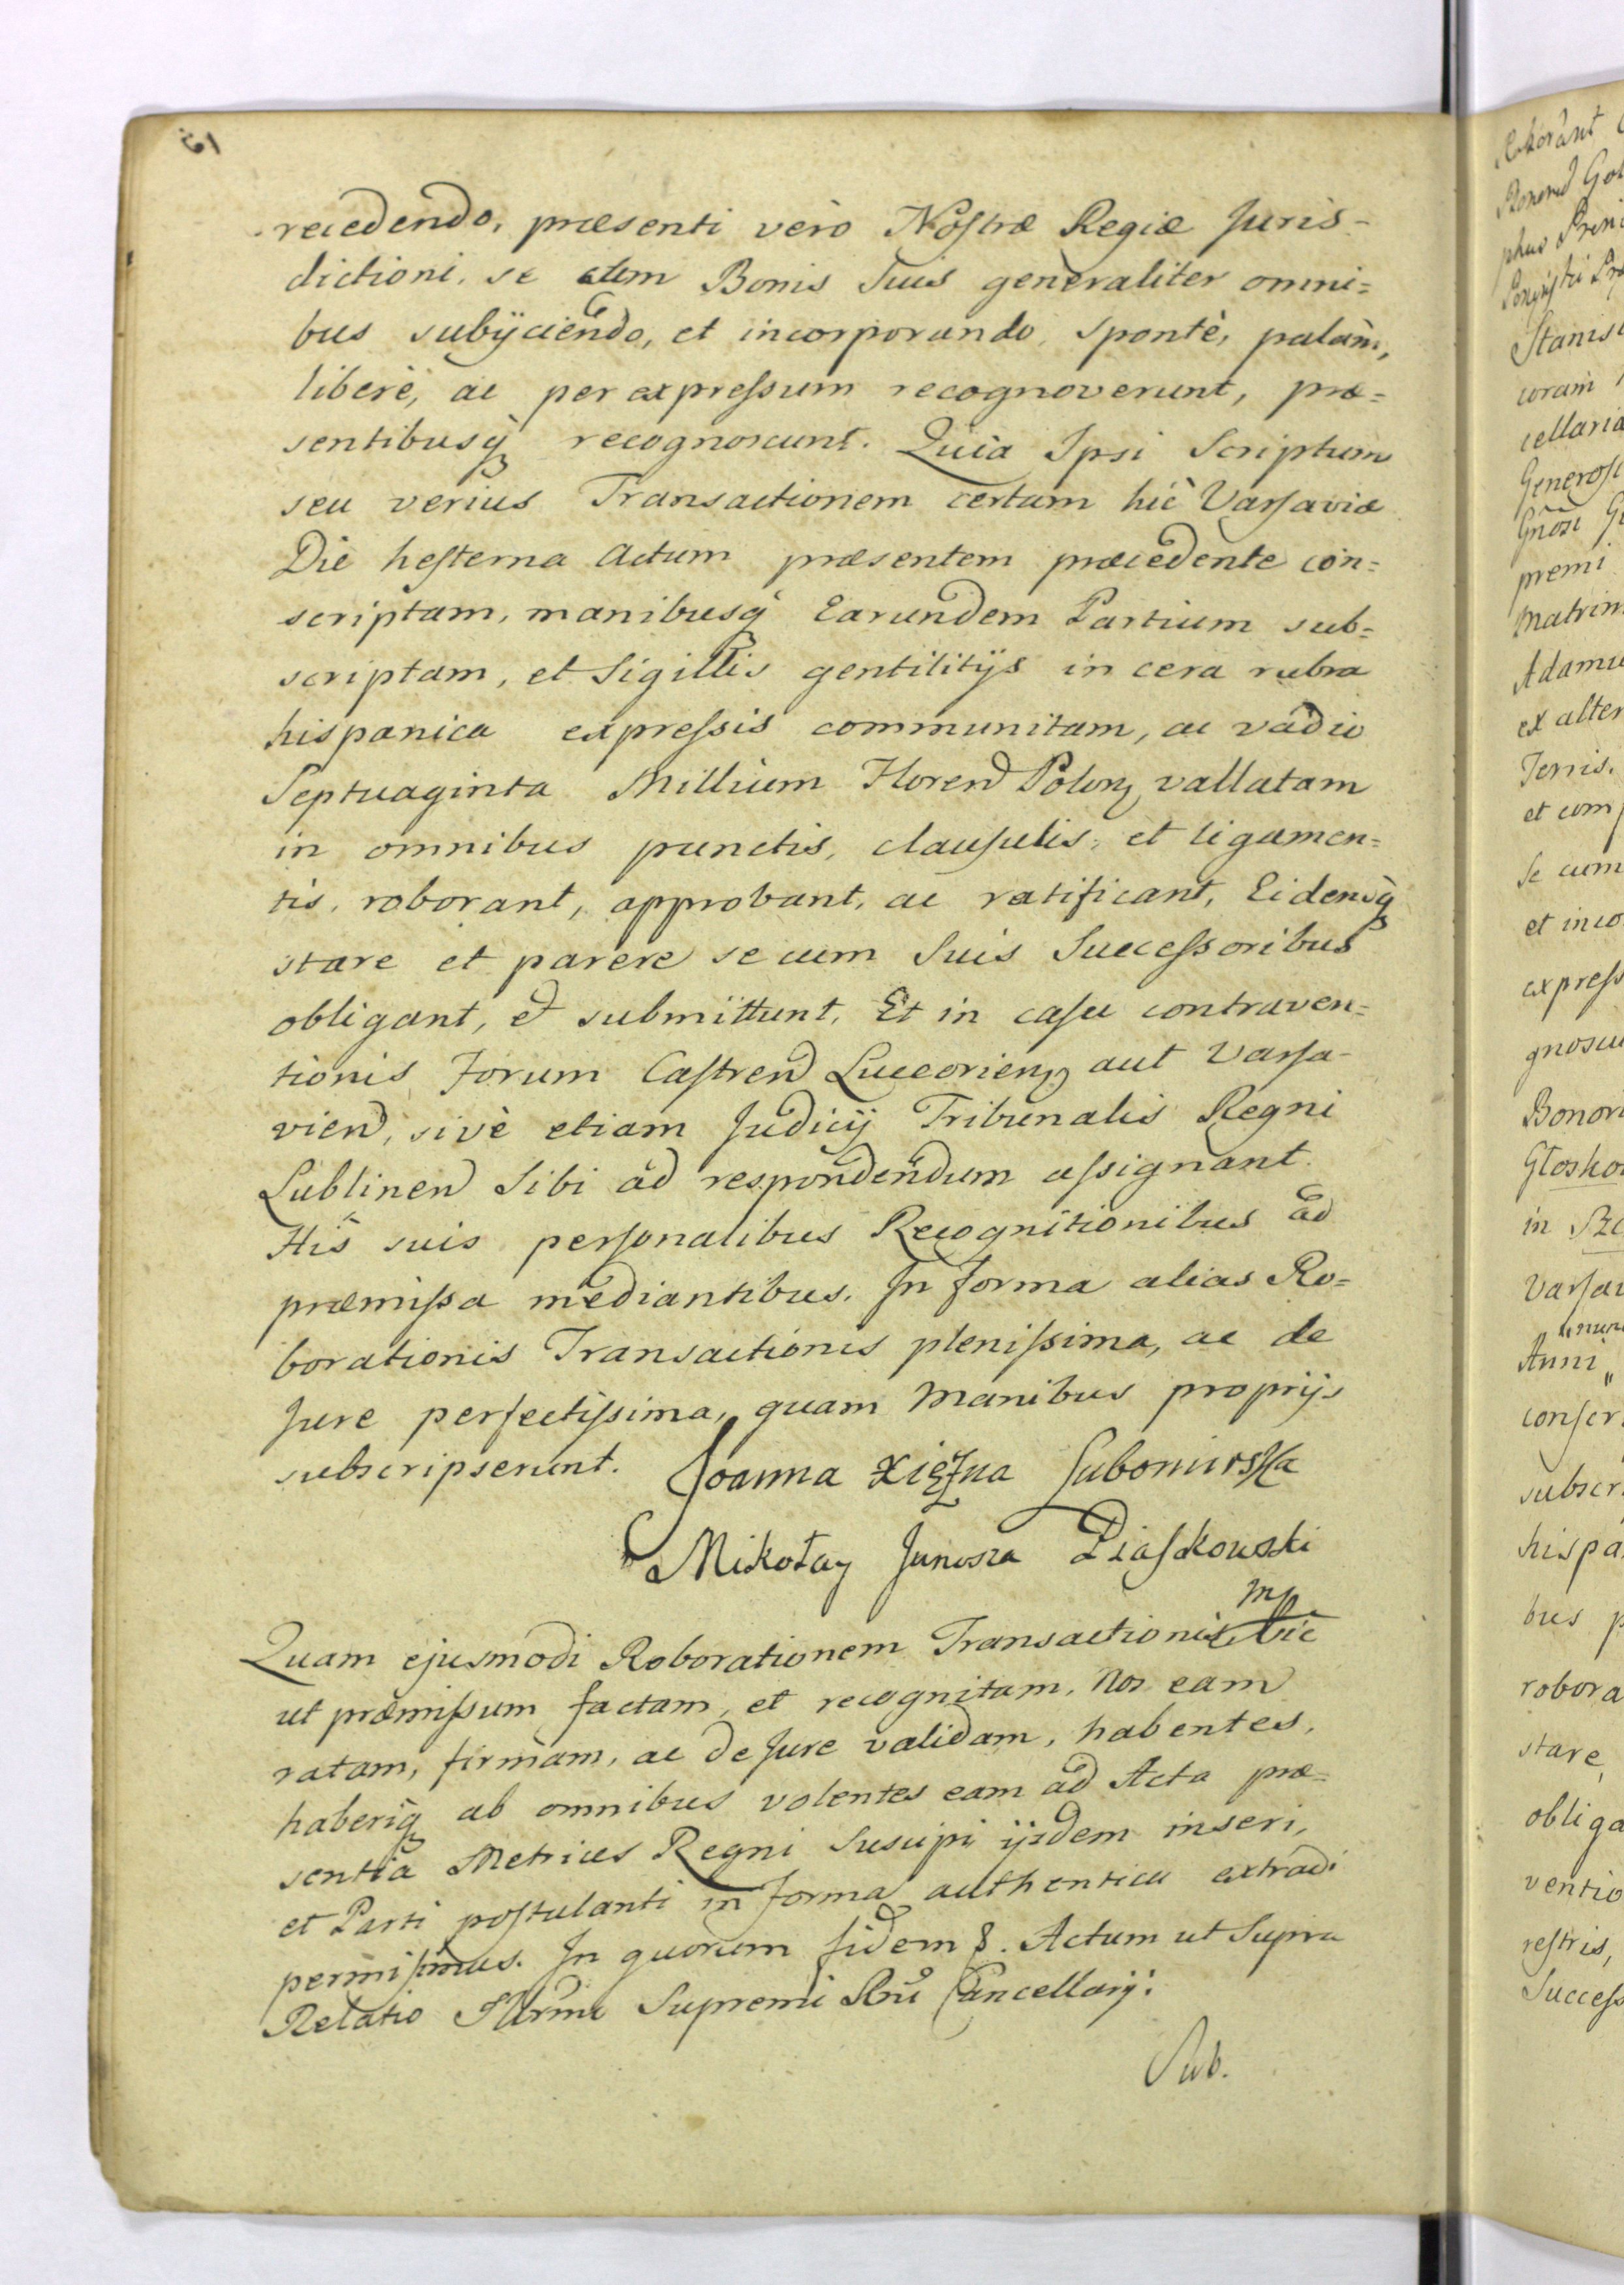 recedendo, præsenti verò Nostræ Regiæ Juris-
dictioni, se cum Bonis Suis generaliter omni=
bus subijciendo, et incorporando, spontè, palàm,
liberè, ac per expressum recognoverunt, præ=
sentibusq́ recognoscunt. Quia Ipsi Scriptum
seu verius Transactionem certam hic Varsaviæ
Die hesterna Actum præsentem præcedente con=
scriptam, manibusq́ Earundem Partium sub=
scriptam, et Sigillis gentilitijs in cera rubra
hispanica expressis communitam, ac vadio
Septuaginta Millium Floren Polon vallatam
in omnibus punctis, clausulis, et ligamen=
tis, roborant, approbant, ac ratificant, Eidemq́
stare et parere se cum Suis Successoribus
obligant, et submittunt, Et in casu contraven=
tionis Forum Castren Luceorien aut Varsa-
vien, sivè etiam Judicij Tribunalis Regni
Lublinen Sibi ad respondendum assignant.
His suis personalibus Recognitionibus ad
præmissa mediantibus. In forma alias Ro=
borationis Transactionis plenissima, ac de
Jure perfectissima, quam Manibus proprijs
subscripserunt. Joanna Xiężna Lubomirska
Mikołay Junosza Piaskowski
mp
Quam ejusmodi Roborationem Transactionis, sic
ut præmissum factam, et recognitam, Nos eam
ratam, firmam, ac de Jure validam, habentes,
haberiq́ ab omnibus volentes eam ad Acta præ=
sentia Metrices Regni Suscipi ijsdem inseri,
et Parti postulanti in forma authentica extradi
permisimus. In quorum fidem &. Actum ut Supra
Relatio Illrmi Supremi Rni Cancellarij.
Sub.
15
Roborant
Stanisl
coram
cellaria
Generosi
Gnosi
premi
Matrim
Adamu
ex alter
Terris.
et com
Se cum
et inco
express
gnoscu
Bonor
Głosko
in Szc
Varsav
Anni
conscr
subscr
hispa
bus p
robora
stare,
obliga
ventio
restris,
Success